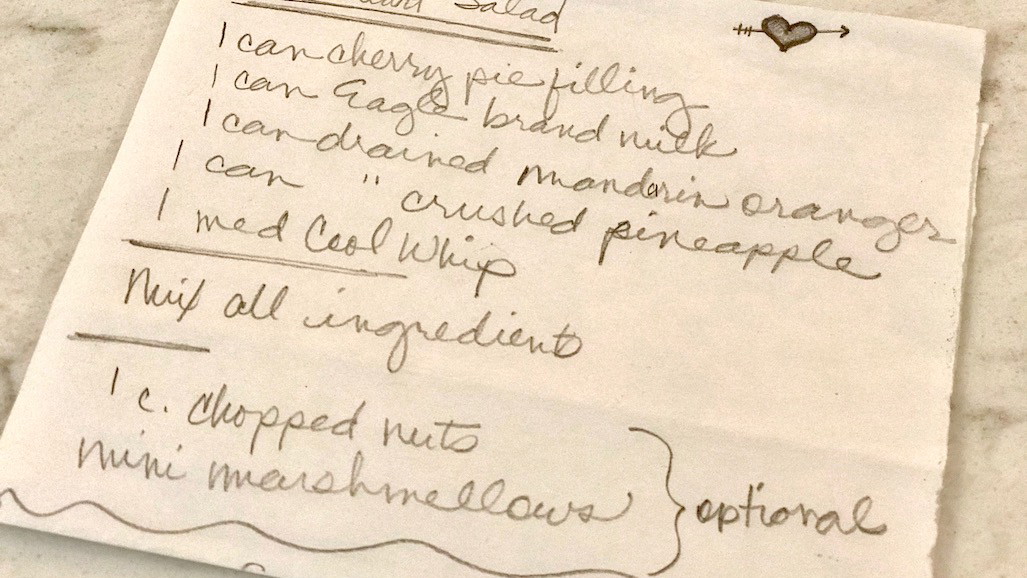 Salad
1 can cherry pie filling
1 can Eagle brand milk
1 can drained mandarin oranges
1 can " crushed pineapple
1 med Cool Whip
Mix all ingredients
1 c. chopped nuts
mini marshmellows } optional